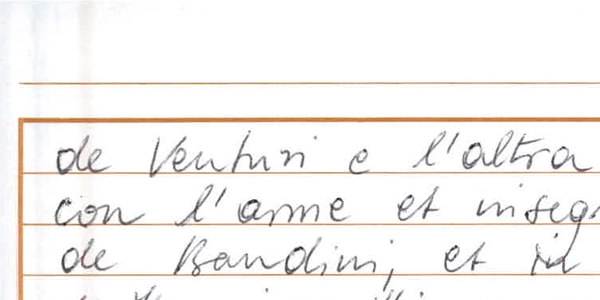 de Venturi e l'altra
con l'arme et inseg
de Bandini, et in